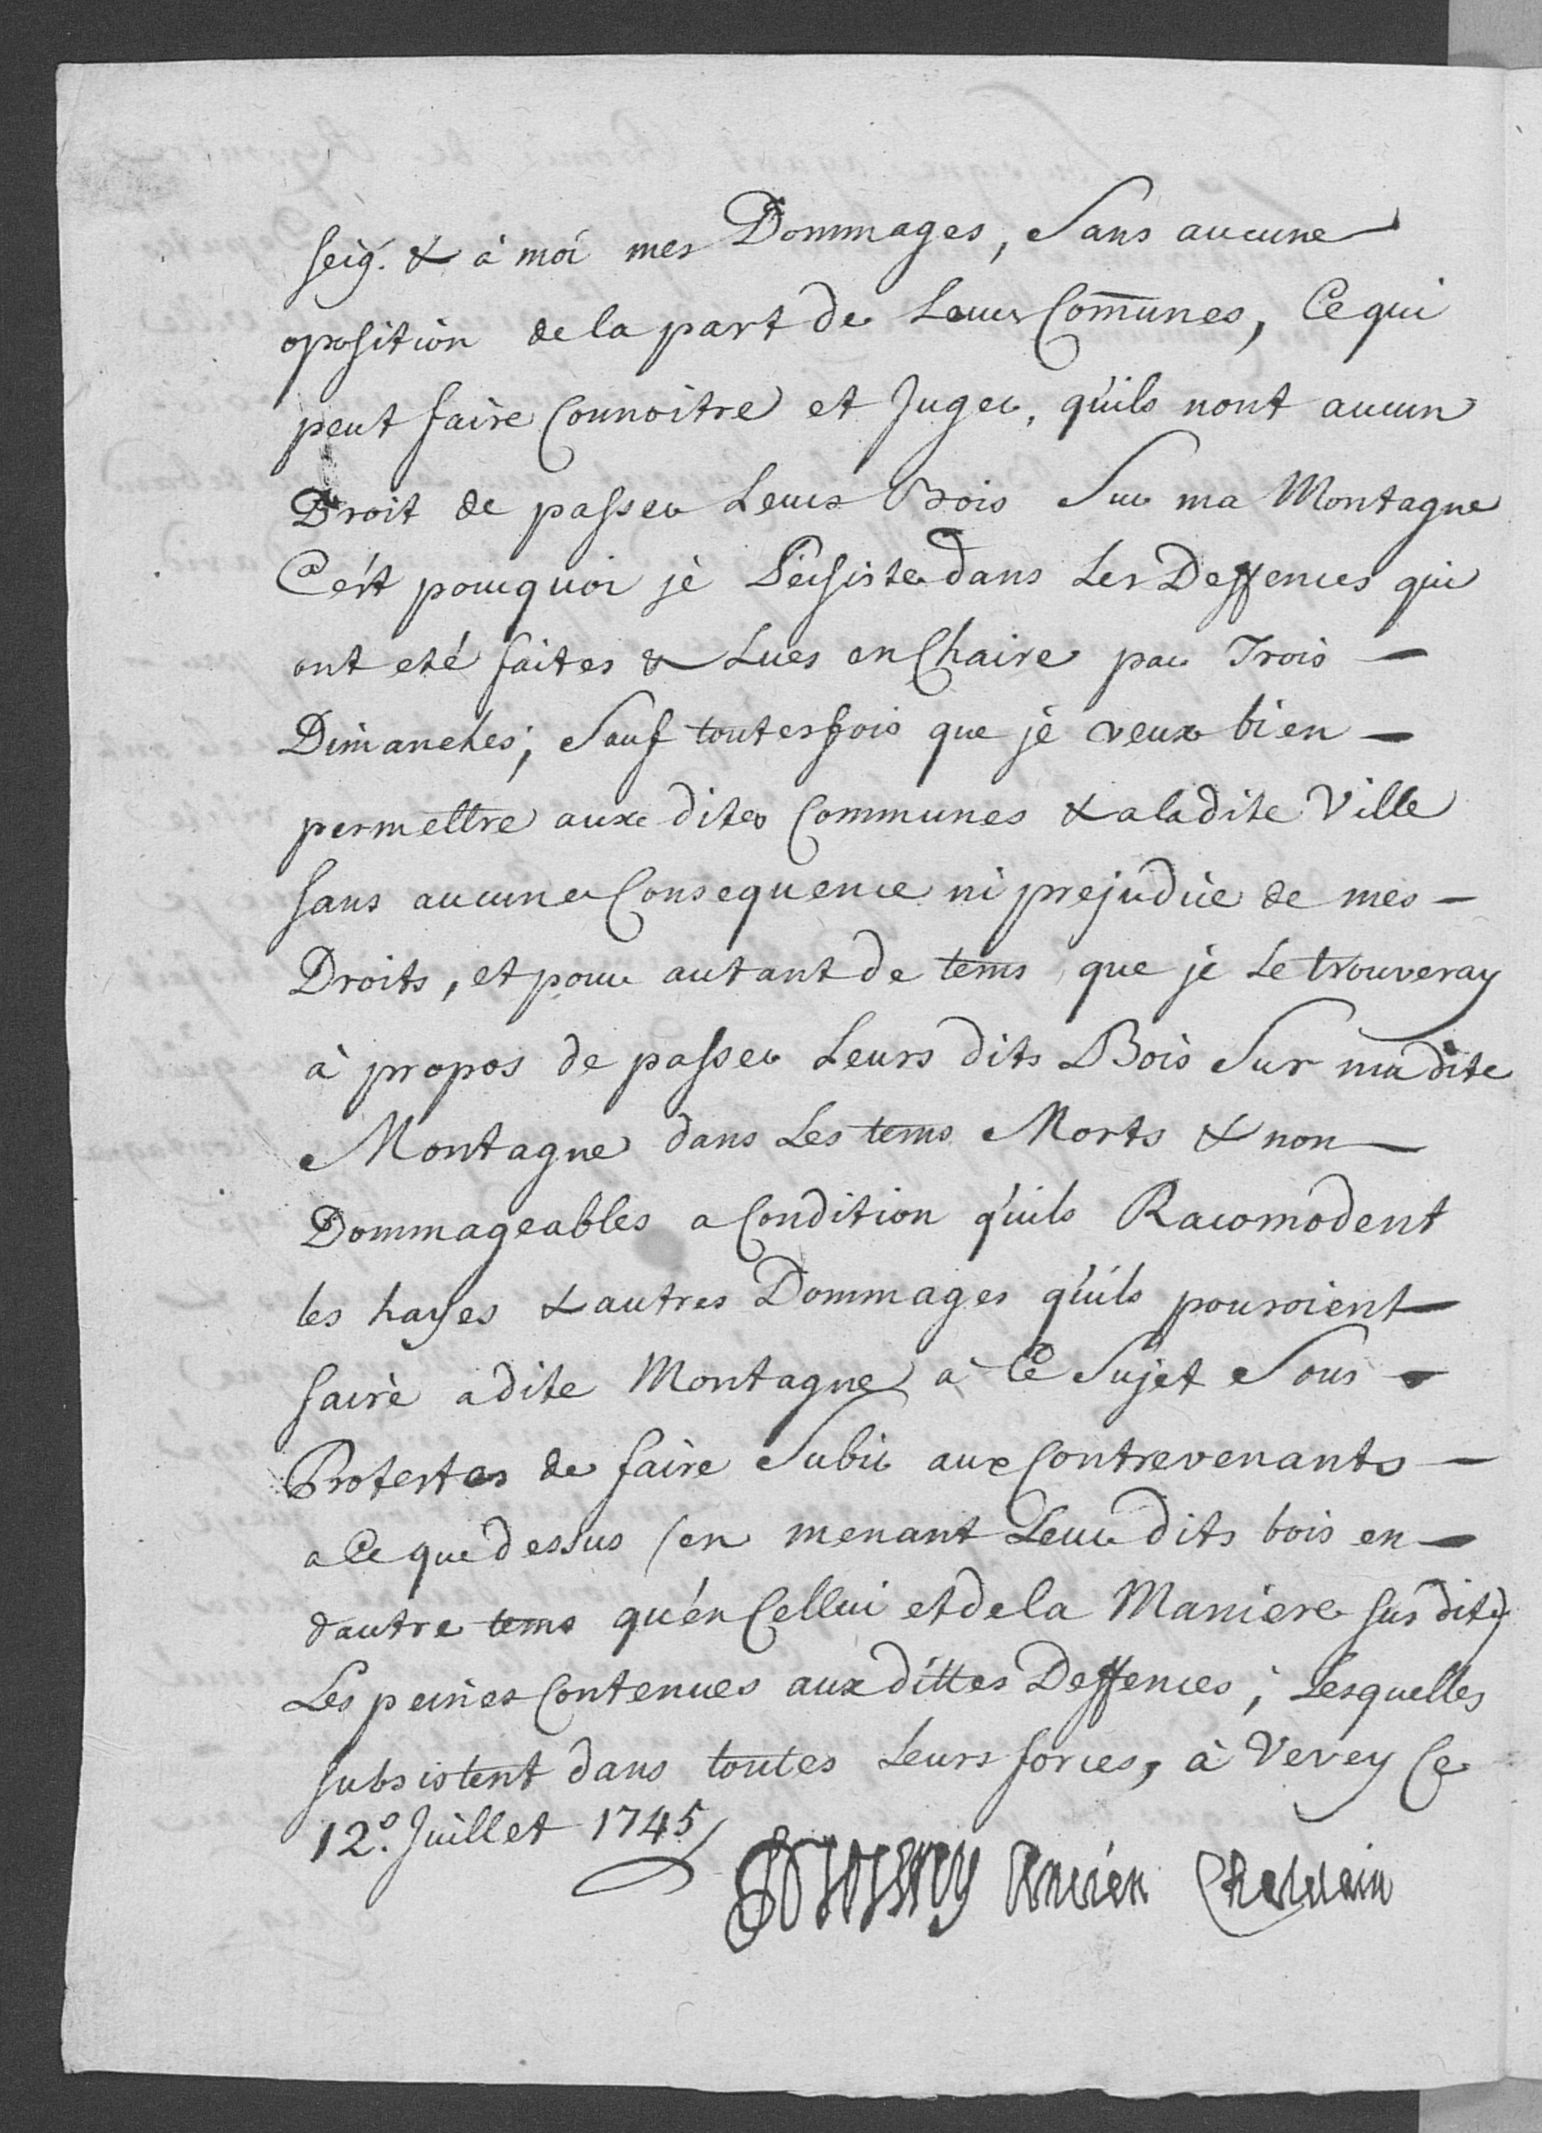 seig.r & à moi mes Dommages, Sans aucune
oposition de la part de Leurs Com̄unes, Ce qui
peut faire Connoitre et Juger, qu'ils nont aucun
Droit de passer Leurs Bois Sur ma Montagne
C'est pourquoi je Persiste dans Les Deffences qui
ont eté faites & Lues en Chaire par Trois –
Dimanches; Sauf toutesfois que je veux bien –
permettre aux dites Communes & a ladite Ville
sans aucune Consequence ni prejudice de mes –
Droits, et pour autant de tems que je Le trouveray
à propos de passer Leurs dits Bois Sur madite
Montagne dans Les tems Morts & non –
Dommageables a Condition qu'ils Racomodent
les hayes & autres Dommages qu'ils pouroient –
faire a dite Montagne à Ce Sujet Sous –
Protestes de faire Subir aux Contrevenants –
a Ce que dessus (en menant Leur dits bois en –
dautre tems qu'en Cellui et de la Maniere susdite)
Les peines Contenues aux dittes Deffences; Lesquelles
subsistent dans toutes Leurs forces, à Vevey Ce
12.e Juillet 1745
Ancien Chatelain